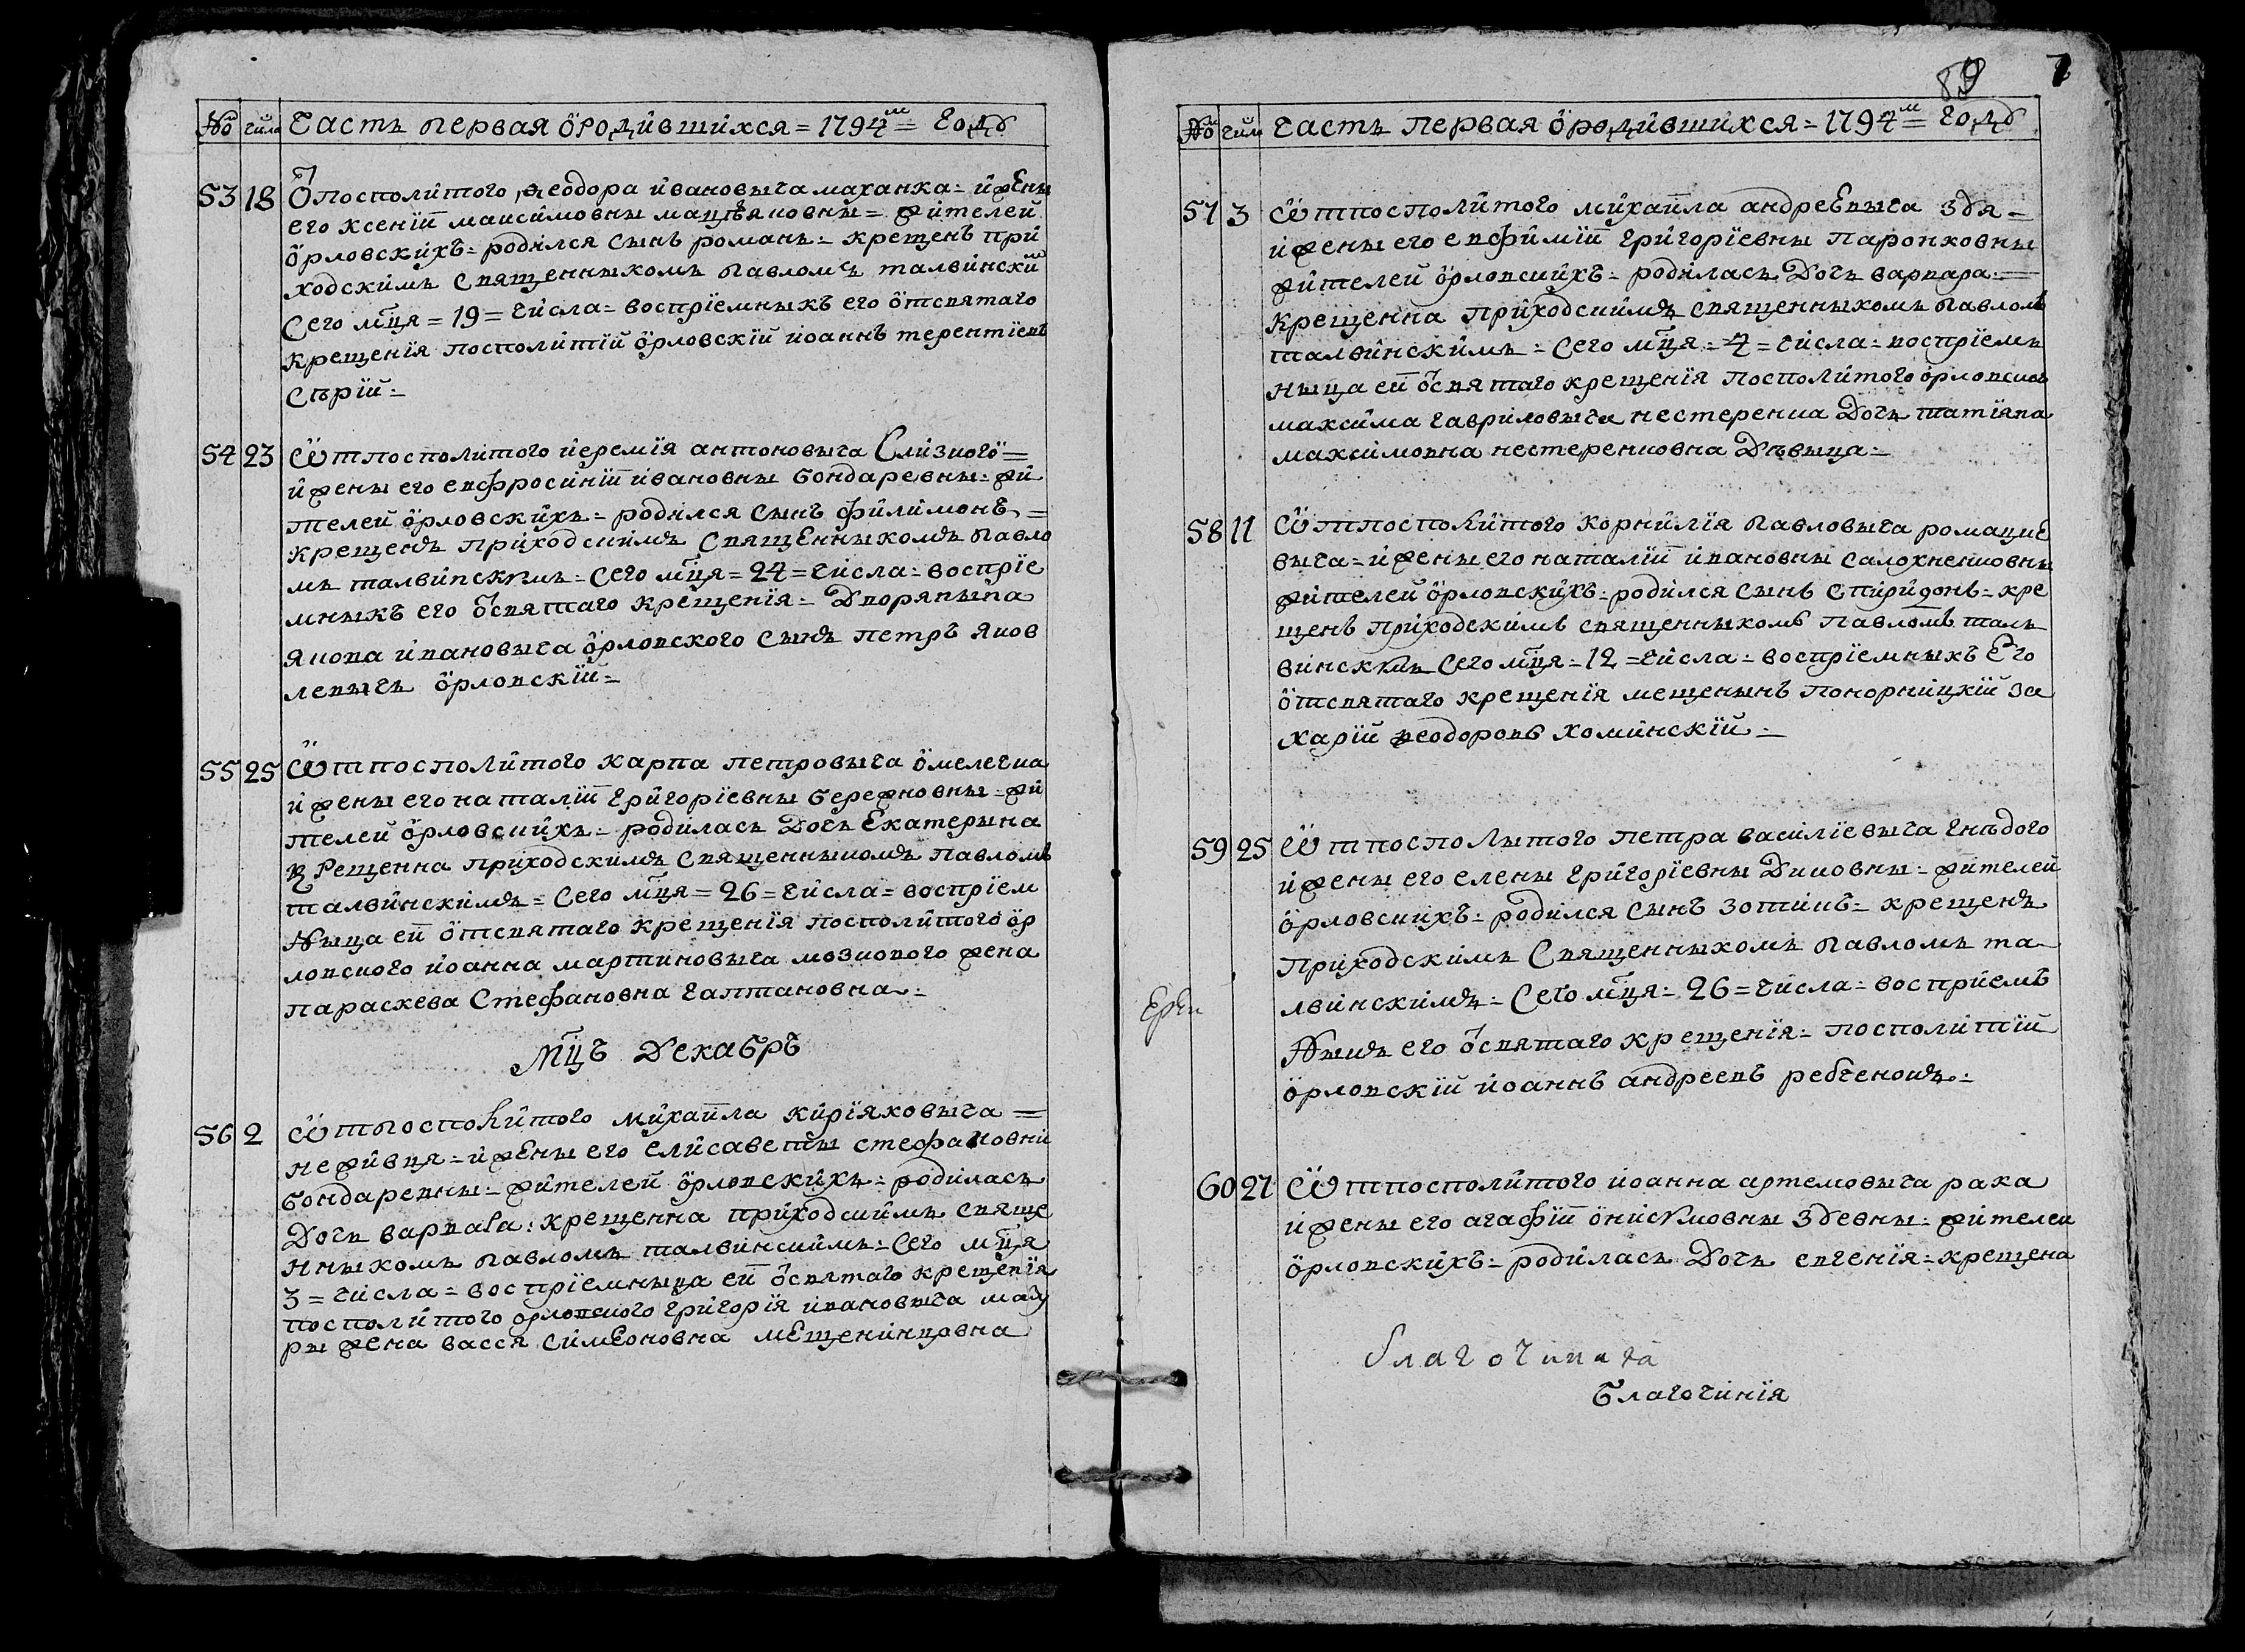 № числ Часть первая о родившихся = 1794м = году
53 18 Ѿ посполитого Ѳеодора ивановыча маханка = и жены
его ксении максимовны мацѣяновны = жителей
орловскихъ = родился сынъ романъ = крещенъ при
ходскимъ священныкомъ павломъ талвинским
Сего мця = 19 = числа = восприемныкъ его от святаго
крещенія посполитій орловскій иоаннъ терентіевъ
сѣрій =
54 23 Ѿ посполитого иеремія антоновыча Слизкого =
и жены его евфросиніи ивановны бондаревны = жи
телей орловскихъ = родился сынъ филимонъ =
крещенъ приходскимъ священныкомъ павло
мъ талвинскимъ = сего мця = 24 = числа = воспріе
мныкъ его ѿ святаго крещенія = Дворянына
якова ивановыча орловского сынъ петръ яков
левычъ орловскій =
55 25 Ѿ посполитого карпа петровыча омелечка
и жены его наталіи григоріевны бережновны = жи
телей орловскихъ = родилась дочь Екатерына
крещенна приходскимъ священныкомъ павломъ
талвинскимъ = сего мця = 26 = числа = воспріем
ныца ей от святаго крещенія посполитого ор
ловского иоанна мартиновыча мозкового жена
параскева Стефановна гаптановна =
Мцъ Декабрь
56 2 Ѿ посполитого михаила киріяковыча =
неживця = и жены его елисаветы стефановны
бондаревны = жителей орловскихъ = родилась
Дочь варвара: крещенна приходскимъ свяще
нныкомъ павломъ талвинскимъ = сего мця
3 = числа = воспріемныца ей ѿ святаго крещенія
посполитого орловского григорія ивановыча мау
ры жена васся симеоновна мещенинцовна
89 7
№ числ Часть первая о родившихся = 1794м = году
57 3 Ѿ посполитого михаила андреевыча здя =
и жены его евфиміи григоріевны паронковны
жителей орловскихъ = родилась дочь варвара =
крещенна приходскимъ священныкомъ павломъ
талвинскимъ = сего мця = 4 = числа = воспріем
ныца ей ѿ святаго крещенія посполитого орловског
максима гавриловыча нестеренка дочь татіяна
максимовна нестеренковна Дѣвыца =
58 11 Ѿ посполитого корнилія павловыча романце
выча = и жены его наталіи ивановны салохненковны
жителей орловскихъ = родился сынъ спиридонъ = кре
щенъ приходскимъ священныкомъ павломъ тал
винскимъ сего мця = 12 = числа = воспріемныкъ его
от святаго крещенія мещенынъ понорницкій за
харій Ѳеодоровъ хоминскій =
59 25 Ѿ посполытого петра василіевыча гнѣдого
и жены его елены григоріевны Диковны = жителей
орловскихъ = родился сынъ зотикъ = крещенъ
приходскимъ Священныкомъ павломъ та
лвинскимъ = сего мця = 26 = числа = воспріем
ныкъ его ѿ святаго крещенія = посполитій
орловскій иоаннъ андреевъ ребченокъ =
60 27 Ѿ посполитого иоанна артемовыча рака
и жены его агафіи онискмовны здевны = жителей
орловскихъ = родилась Дочь евгенія = крещена
благочиния
Благочинія